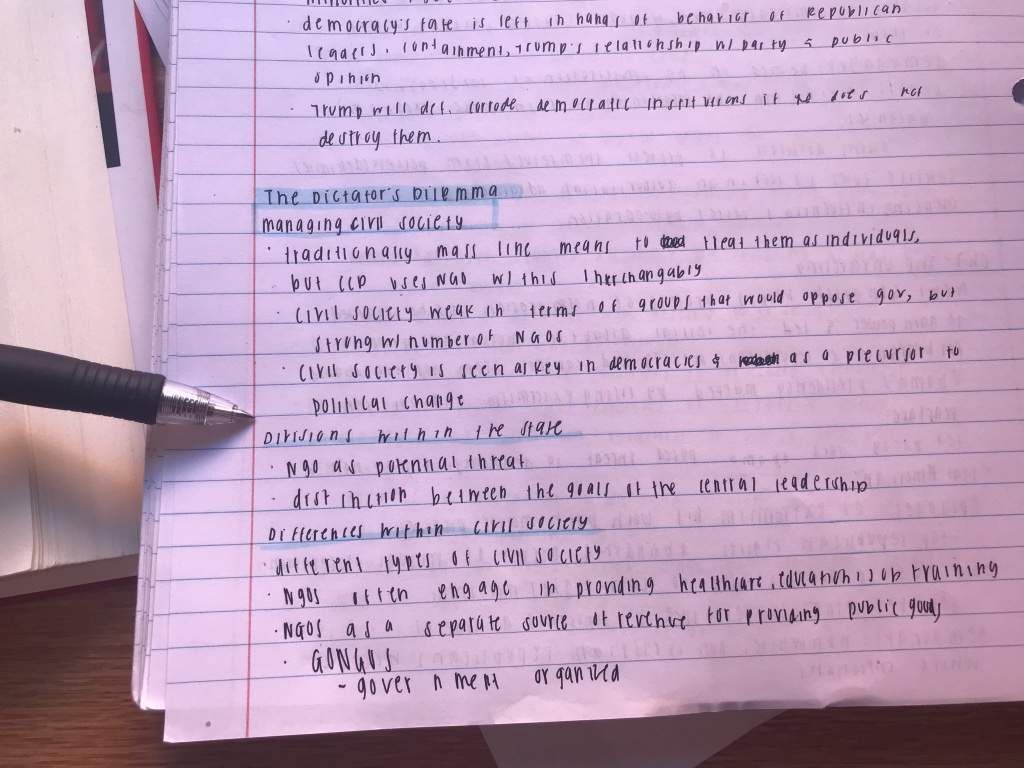 · democracy's fate is left in hands of behavior of Republican
leaders, containment, Trump's relationship w/ party & public
opinion
· Trump will def. corrode democratic institutions if he does not
destroy them.
The Dictator's Dilemma
managing civil society
· traditionally mass line means to treat them as individuals,
but CCP uses NGO w/ this Interchangably
· civil society weak in terms of groups that would oppose gov, but
strong w/ number of NGOs
· civil society is seen as key in democracies & as a precursor to
political change
Divisions within the state
· NGO as potential threat
· distinction between the goals of the central leadership
Differences within civil society
· different types of civil society
· NGOs often engage in providing healthcare, education, job training
· NGOs as a separate source of revenue for providing public goods
· GONGOS
- government organized